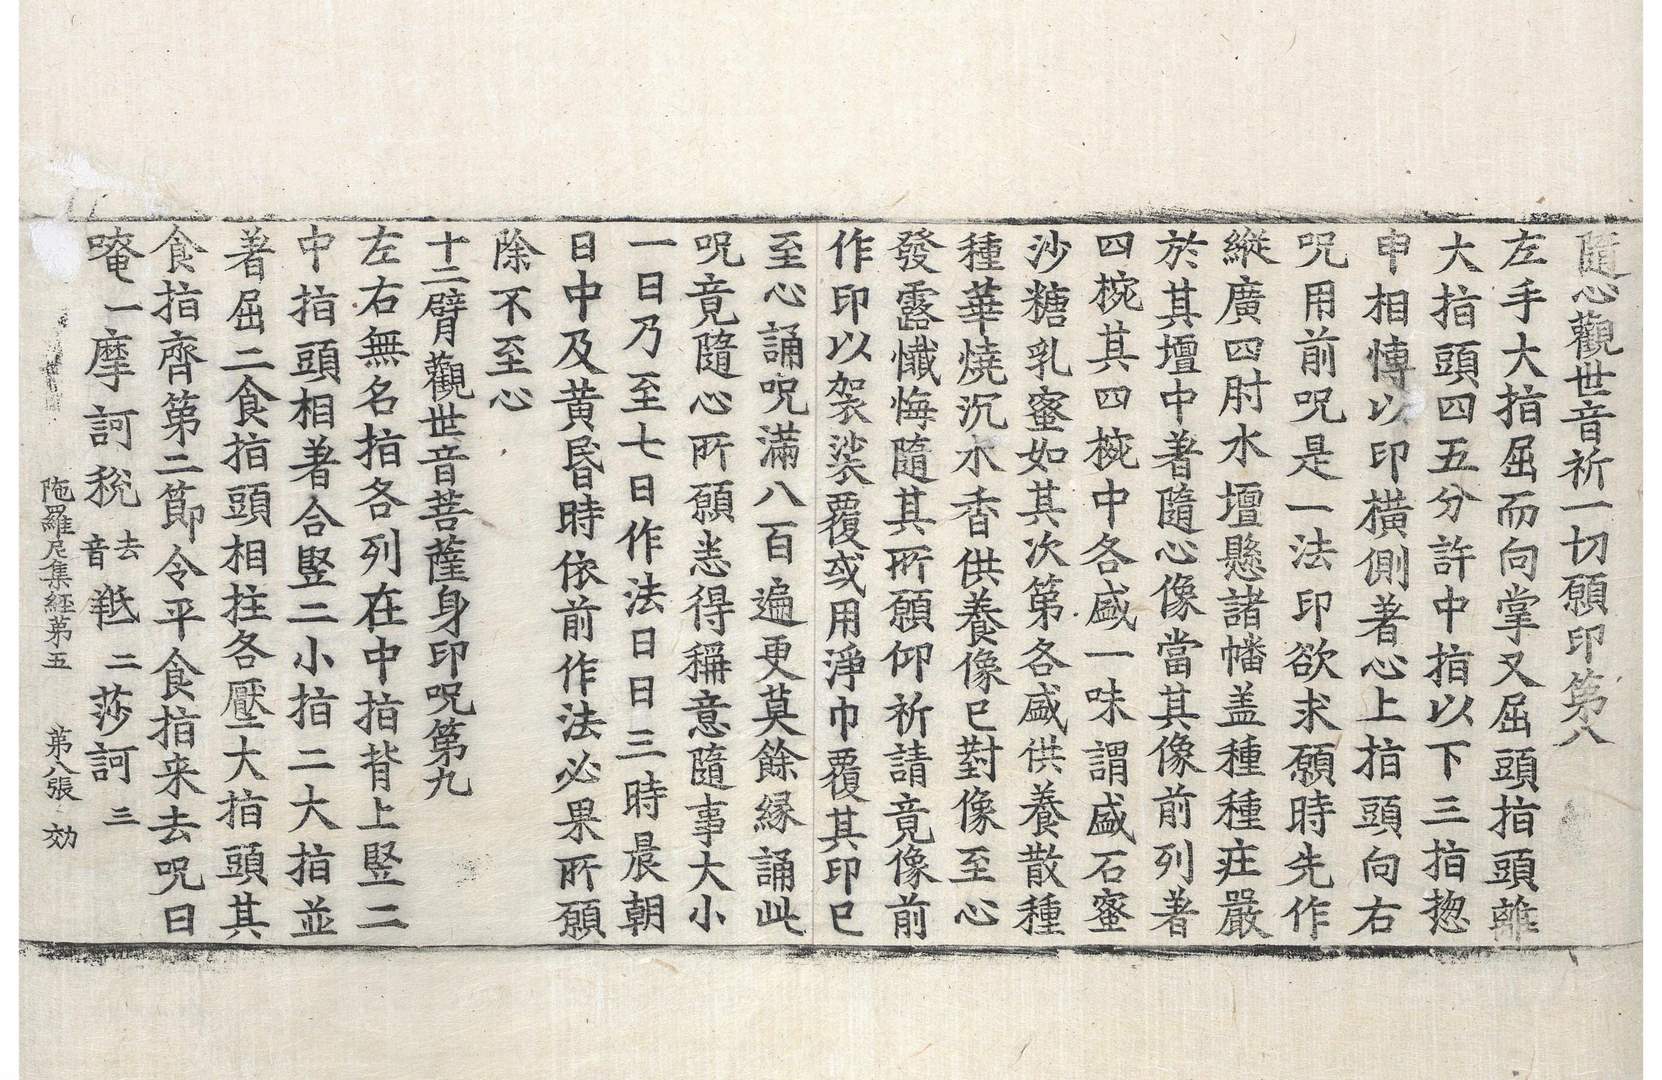 隨心觀世音祈一切願印第八
左手大指屈而向掌又屈頭指頭離
大指頭四五分許中指以下三指惣
申相愽以印橫側著心上指頭向右
呪用前呪是一法印欲求願時先作
縱廣四肘水壇懸諸幡盖種種疘嚴
於其壇中著隨心像當其像前列著
四椀其四椀中各盛一味謂盛石蜜
沙糖乳蜜如其次第各盛供養散種
種華燒沉水香供養像已對像至心
發露懺悔隨其所願仰祈請竟像前
作印以袈裟覆或用淨巾覆其印已
至心誦呪滿八百遍更莫餘緣誦此
呪竟隨心所願悉得稱意隨事大小
一日乃至七日作法日日三時晨朝
日中及黃昏時依前作法必果所願
除不至心
十二臂觀世音菩薩身印呪第九
左右無名指各列在中指背上竪二
中指頭相著合竪二小指二大指並
著屈二食指頭相拄各壓大指頭其
食指齊第二節令平食指来去呪曰
唵一摩訶稅去音羝二莎訶三
陁羅尼集經第五 第八張 効